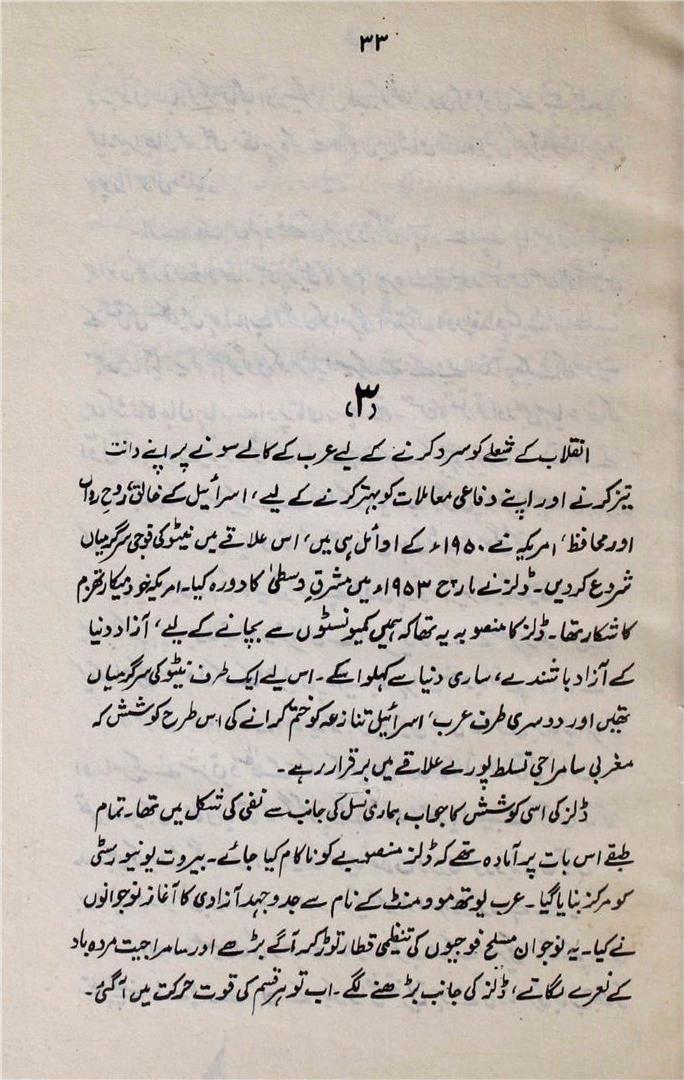 ۳۳
(۳)
انقلاب کے شعلے کو سرد کرنے کے لیے عرب کے کالے سونے پر اپنے دانت
تیز کرنے اور اپنے دفاعی معاملات کو بہتر کرنے کے لیے، اسرائیل کے خالق، روحِ رواں
اور محافظ، امریکہ نے ۱۹۵۰ء کے اوائل ہی میں، اس علاقے میں نیٹو کی فوجی سرگرمیاں
شروع کر دیں۔ ڈلز نے مارچ ۱۹۵۳ء میں مشرقِ وسطیٰ کا دورہ کیا۔ امریکہ خود میکارتھزم
کا شکار تھا۔ ڈلز کا منصوبہ یہ تھا کہ ہمیں کمیونسٹوں سے بچانے کے لیے، آزاد دنیا
کے آزاد باشندے، ساری دنیا سے کہلوا سکے۔ اس لیے ایک طرف نیٹو کی سرگرمیاں
تھیں اور دوسری طرف عرب، اسرائیلی تنازعہ کو ختم کرانے کی اس طرح کوشش کہ
مغربی سامراجی تسلط پورے علاقے میں برقرار رہے۔
ڈلز کی اسی کوشش کا جواب ہماری نسل کی جانب سے نفی کی شکل میں تھا۔ تمام
طبقے اس بات پر آمادہ تھے کہ ڈلز منصوبے کو ناکام کیا جائے۔ بیروت یونیورسٹی
کو مرکز بنایا گیا۔ عرب یوتھ موومنٹ کے نام سے جدوجہد آزادی کا آغاز نوجوانوں
نے کیا۔ یہ نوجوان مسلح فوجیوں کی تنظیمی قطار توڑ کر آگے بڑھے اور سامراجیت مردہ باد
کے نعرے لگاتے، ڈلز کی جانب بڑھنے لگے۔ اب تو ہر قسم کی قوت حرکت میں آ گئی۔